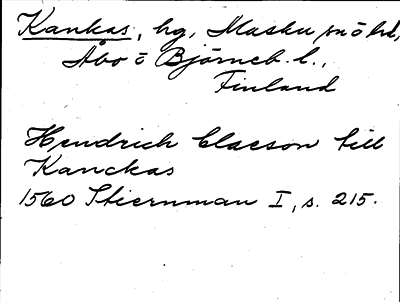 Kankas, hg, Masku sn o hd,
Åbo o Björneb. l.,
Finland
Hendrich Claeson till
Kanckas
1560 Stiernman I, s. 215.